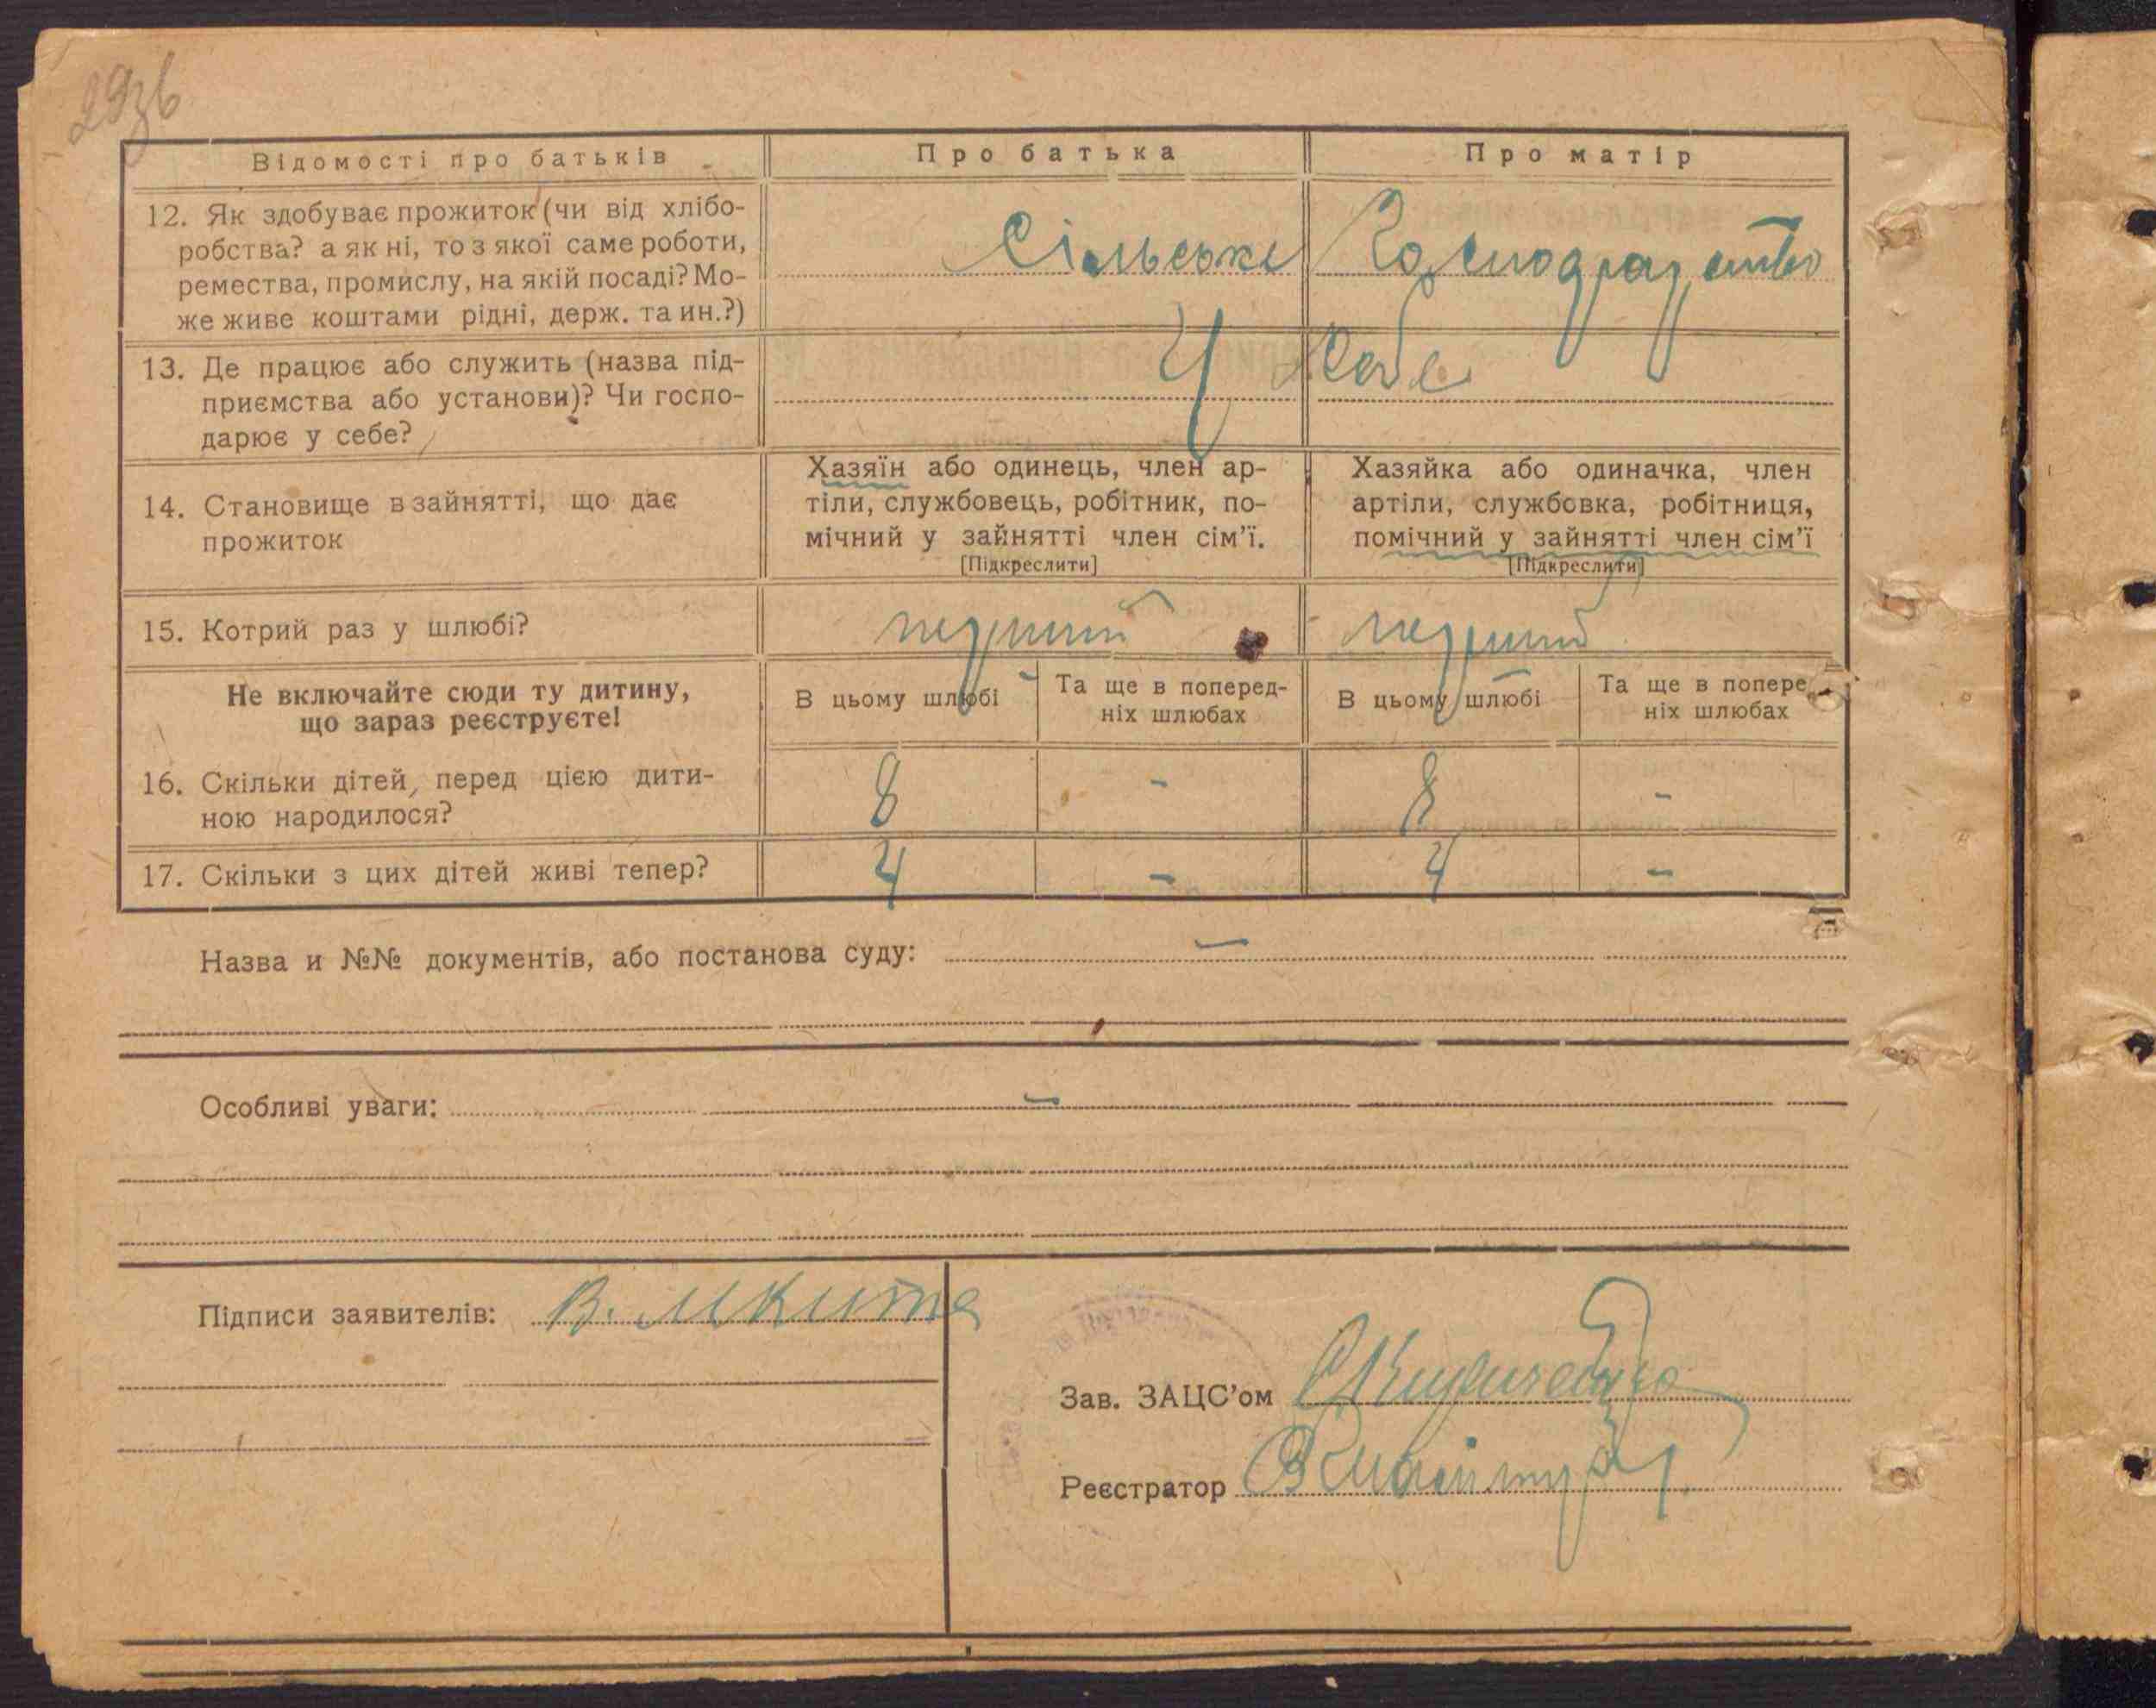 29зв
Відомості про батьків
Про батька
Про матір
12. Як здобуває прожиток (чи від хлібо-
робства? а як ні, то з якої саме роботи,
ремества, промислу, на якій посаді? Мо-
же живе коштами рідні, держ. та ин.?)
Сільське
13. Де працює або служить (назва під-
приємства або установи)? Чи госпо-
дарює у себе?
У себе
14. Становище в зайнятті, що дає
прожиток
Хазяїн або одинець, член ар-
тіли, службовець, робітник, по-
мічний у зайнятті член сім'ї.
[Підкреслити]
Хазяйка або одиначка, член
артіли, службовка, робітниця,
помічний у зайнятті член сім'ї
[Підкреслити]
15. Котрий раз у шлюбі?
перший
перший
Не включайте сюди ту дитину,
що зараз реєструєте!
В цьому шлюбі
Та ще в поперед-
ніх шлюбах
В цьому шлюбі
Та ще в попере
ніх шлюбах
16. Скільки дітей, перед цією дити-
ною народилося?
8
-
8
-
17. Скільки з цих дітей живі тепер?
4
-
4
-
Назва и №№ документів, або постанова суду: —
Особливі уваги: —
Підписи заявителів: В. Микита
Зав. ЗАЦС'ом
Реєстратор